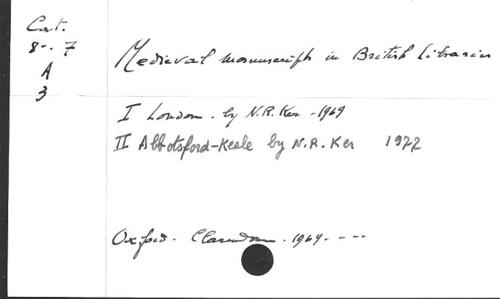 Cat.
8-. 7
A
3
Medieval manuscripts in British Libraries
I London. by N.R. Ker - 1969
II Abbotsford-Keele by N.R. Ker 1977
Oxford. Clarendon. 1969. - - -